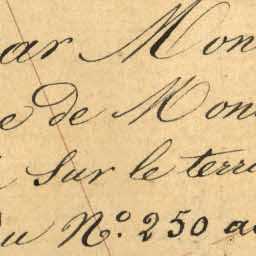 ar Mon
e de Mon
sur le terri
du N.º 250 a